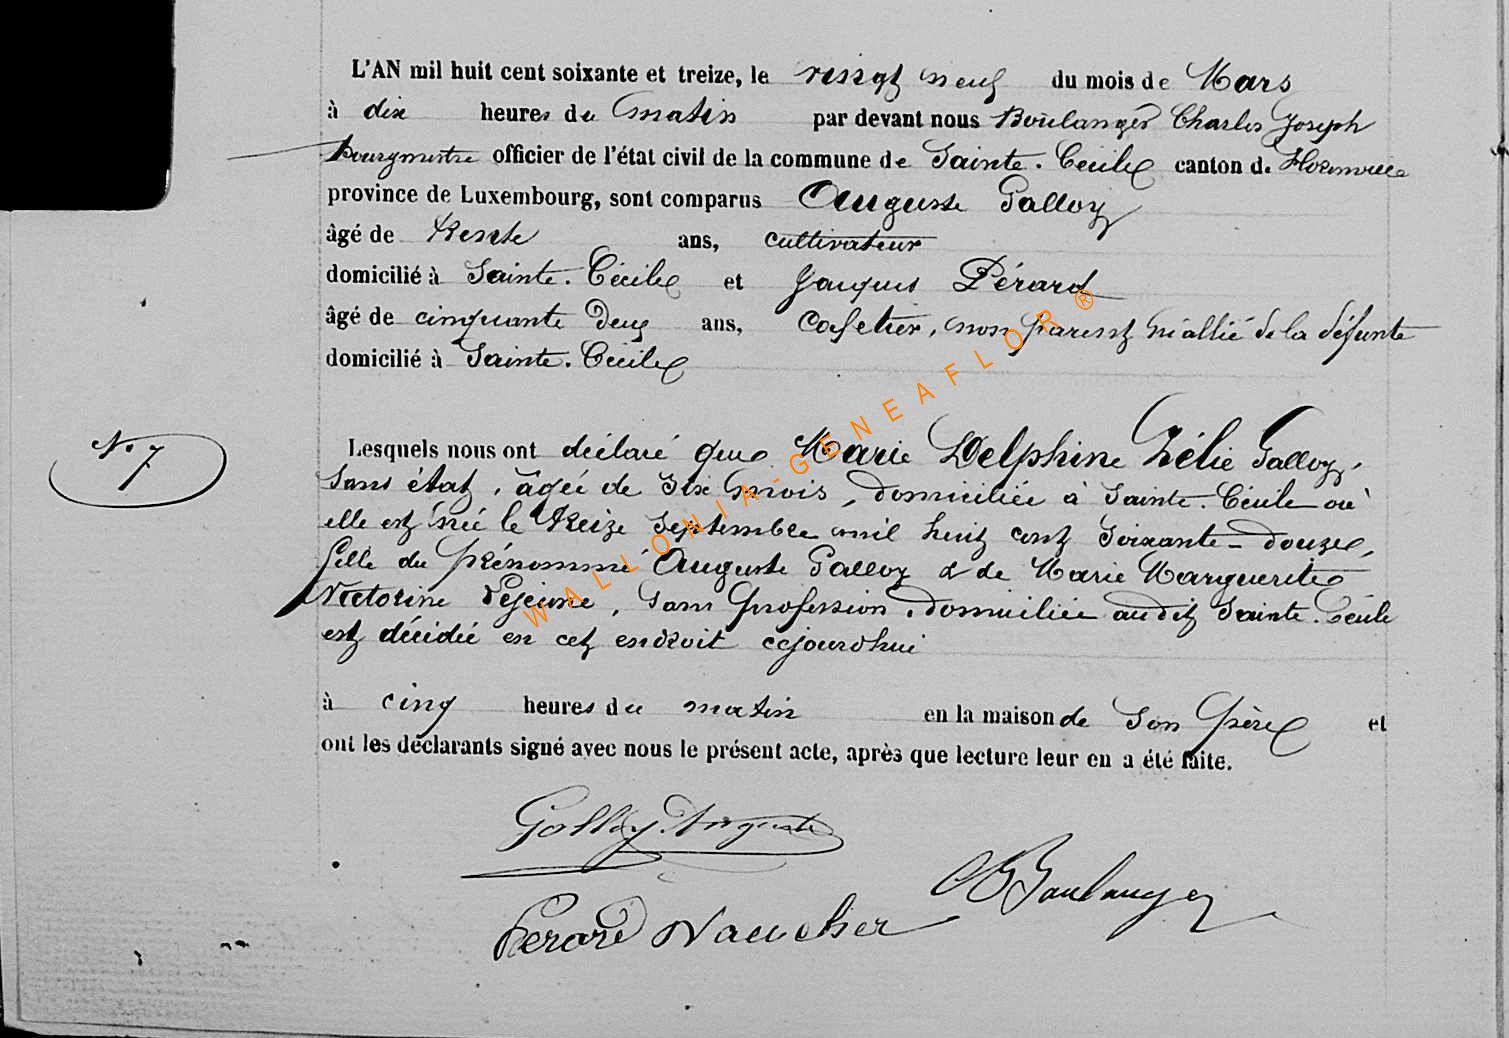 L'AN mil huit cent soixante et treize, le vingt neuf du mois de Mars
à dix heures du matin par devant nous Boulanger Charles Joseph
Bourgmestre officier de l'état civil de la commune de Sainte-Cécile canton de Florenville
province de Luxembourg, sont comparus Auguste Galloy
âgé de trente ans, cultivateur
domicilié à Sainte-Cécile et Jacques Pérard
âgé de cinquante deux ans, cafetier, non parent ni allié de la défunte
domicilié à Sainte-Cécile
N° 7
Lesquels nous ont déclaré que Marie Delphine Zélie Galloy,
sans état, âgée de six mois, domiciliée à Sainte-Cécile où
elle est née le treize septembre mil huit cent soixante-douze,
fille du prénommé Auguste Galloy & de Marie Marguerite
Victorine Lejeune, sans profession, domiciliée audit Sainte-Cécile
est décidée en cet endroit cejourdhui
à cinq heures du matin en la maison de son père et
ont les déclarants signé avec nous le présent acte, après que lecture leur en a été faite.
Galloy Auguste
CBoulanger
Perard Vaucher
WALLONIA-GENEAFLOR®